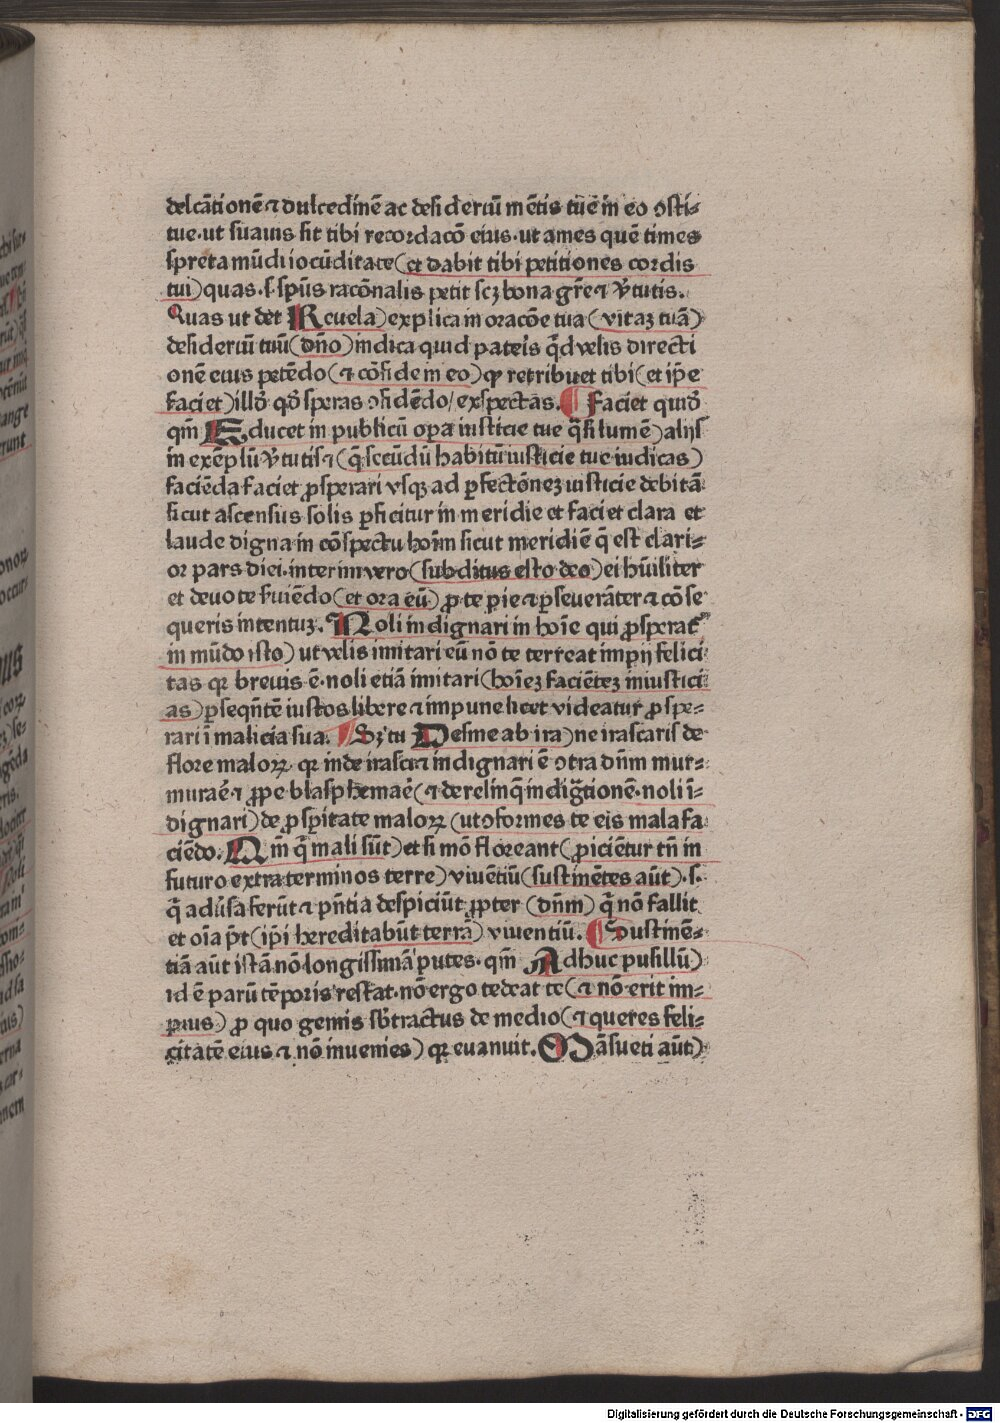 delcātionē ⁊ dulcedinē ac desideriū mētis tue in eo ɔsti⸗
tue·ut suauis sit tibi recordacō eius·ut ames quē times
spreta mūdi iocūditate(et dabit tibi petitiones cordis
tui)quas·s·spūs racōnalis petit scꝫ bona gr̄e ⁊ v̄tutis.
Quas ut det Reuela)explica in oracōe tua(vitaꝫ tuā)
desideriū tuū(dn̄o)indica quid pateis q̄d velis directi
onē eius petēdo(⁊ cōfide in eo)qꝛ retribuet tibi(et ip̄e
faciet)illd̄ qd̄ speras ɔfidēdo/exspectas. Faciet quid̄
qm̄ Educet in publicū oꝑa iusticie tue q̄si lumē)alijs
in exēplū v̄tutis ⁊(q̄ scdū habitū iusticie tue iudicas)
faciēda faciet ꝓsperari vsqꝫ ad ꝑfectōneꝫ iusticie debitā
sicut ascensus solis ꝑficitur in meridie et faciet clara et
laude digna in cōspectu hoim̄ sicut meridiē q̄ est clari⸗
or pars diei·interim vero(subditus esto deo)ei hūiliter
et deuote s̄uiēdo(et ora eū)ꝓ te pie ⁊ ꝑseuerāter ⁊ cōse
queris intentuꝫ. Noli indignari in hoīe qui ꝓsperat᷑
in mūdo isto)ut velis imitari eū nō te terreat impij felici⸗
tas qꝛ breuis ē·noli etiā imitari(hoīeꝫ faciēteꝫ iniustici⸗
as)ꝑseqn̄tē iustos libere ⁊ impune licet videatur ꝓspe⸗
rari ī malicia sua. Sꝫ tu Desine ab ira)ne irascaris de
flore maloꝝ qꝛ inde irasci ⁊ indignari ē ɔtra dn̄m mur⸗
murae ⁊ ꝓpe blasphemae(⁊ derelinq̄ indigtionē·noli ī⸗
dignari)de ꝓsꝑitate maloꝝ(ut ɔformes te eis mala fa⸗
ciēdo. Qm̄ q̄ mali sūt)et si mō floreant(ꝓicientur tn̄ in
futuro extra terminos terre)viuentiū(sustinētes aūt)·s·
q̄ adūsa ferūt ⁊ pn̄tia despiciūt ꝓpter(dn̄m)q̄ nō fallit
et oīa p̄t(ip̄i hereditabūt terrā)viuentiū. Sustinē⸗
tiā aūt istā nō longissimā putes·qm̄ Adhuc pusillū)
id ē parū tēporis restat·nō ergo tedeat te(⁊ nō erit im⸗
pius)ꝓ quo gemis sb̄tractus de medio(⁊ queres feli⸗
citatē eius ⁊ nō inuenies)qꝛ euanuit. Māsueti aūt)
Digitalisierung gefördert durch die Deutsche Forschungsgemeinschaft - DFG